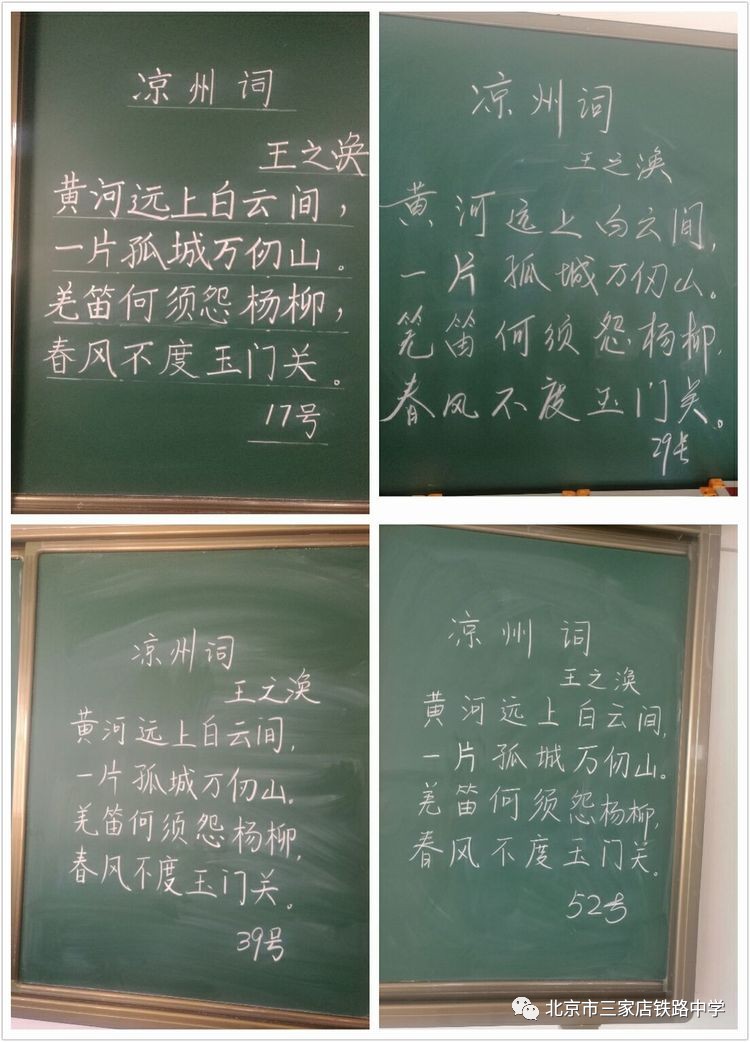 凉州词
王之涣
黄河远上白云间，
一片孤城万仞山。
羌笛何须怨杨柳，
春风不度玉门关。
17号
凉州词
王之涣
黄河远上白云间，
一片孤城万仞山。
羌笛何须怨杨柳，
春风不度玉门关。
29号
凉州词
王之涣
黄河远上白云间，
一片孤城万仞山。
羌笛何须怨杨柳，
春风不度玉门关。
39号
凉州词
王之涣
黄河远上白云间，
一片孤城万仞山。
羌笛何须怨杨柳，
春风不度玉门关。
52号
北京市三家店铁路中学